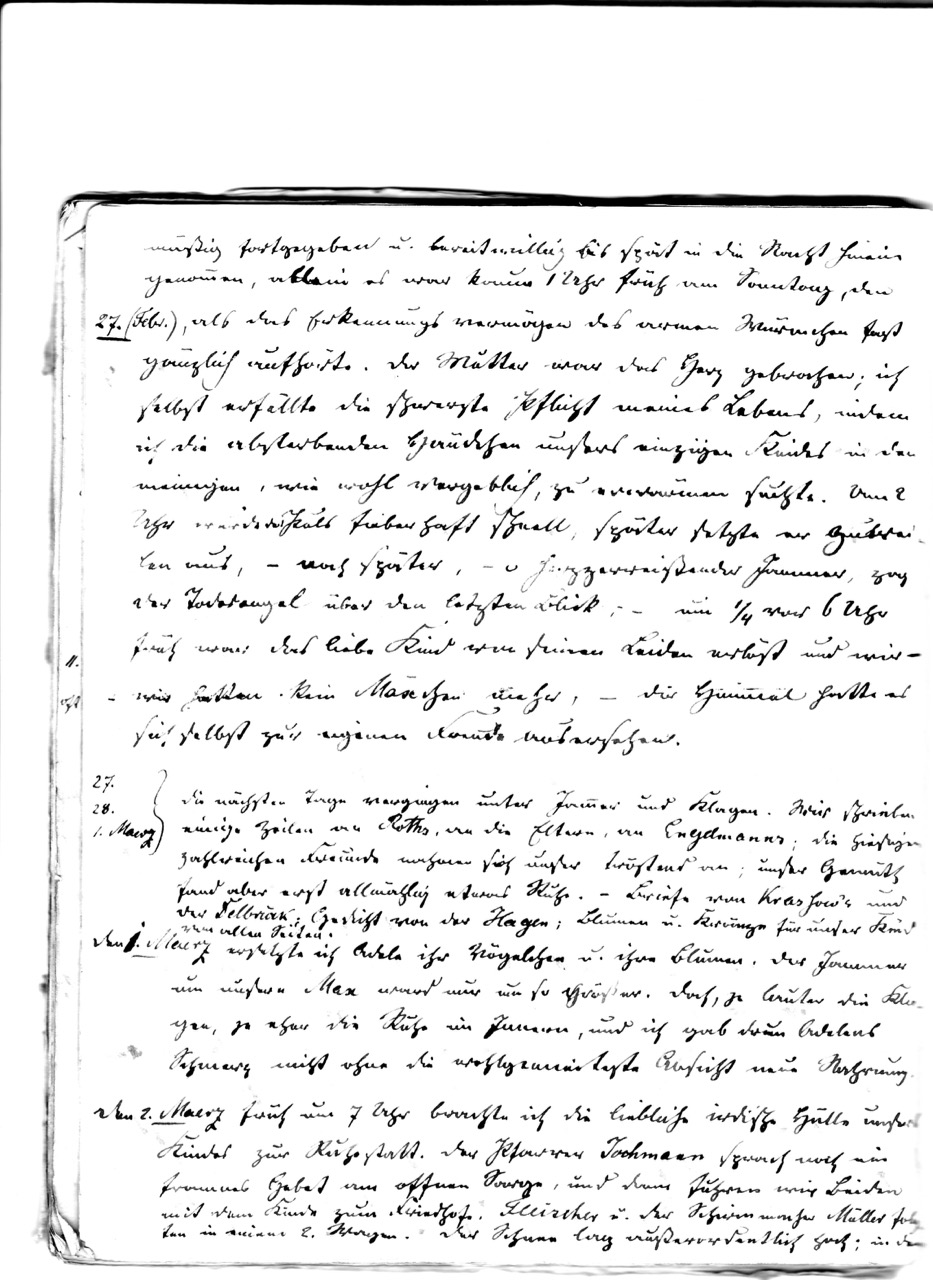 mäßig fortgegeben u. bereitwillig bis spät in die Nacht hinein
genom̄en, allein es war kaum 1 Uhr früh am Sonntag, den
27. (Febr.), als das Erkennungsvermögen des armen Würmchen fast
gänzlich aufhörte. Der Mutter war das Herz gebrochen; ich
selbst erfüllte die schwerste Pflicht meines Lebens, indem
ich die absterbenden Händchen unsers einzigen Kindes in den
meinigen, wie wohl vergeblich, zu erwärmen suchte. Um 2
Uhr wurde der Puls fieberhaft schnell, später setzte er zuwei-
len aus, – noch später, – o herzzerreißender Jammer, zog
der Todesengel über den letzten Blick; – um 1/4 vor 6 Uhr
früh war das liebe Kind von seinen Leiden erlöst und wir –
– wir hatten kein Mäxchen mehr, – der Himmel hatte es
sich selbst zur eigenen Freude ausersehen.
27.
28.
1. Maerz
die nächsten Tage vergingen unter Jam̄er und Klagen. Wir schrieben
einige Zeilen an Roths, an die Eltern, an Engelmanns; die hiesigen
zahlreichen Freunde nahmen sich unser tröstend an; unser Gemüth
fand aber erst allmählig etwas Ruhe. – Briefe von Krashow's und
der Delbrück; Gedicht von der Hagen; Blumen u. Kränze für unser Kind
von allen Seiten.
den 1. Maerz ersetzte ich Adele ihr Vögelchen u. ihre Blumen. Der Jammer
um unsern Max ward nur um so größer. Doch, je lauter die Kla-
gen, je eher die Ruhe im Innern, und ich gab drum Adelens
Schmerz nicht ohne die wohlgemeinteste Absicht neue Nahrung.
den 2. Maerz früh um 7 Uhr brachte ich die liebliche irdische Hülle unsers
Kindes zur Ruhestatt. Der Pfarrer Jochmann sprach noch ein
frommes Gebet am offnen Sarge, und dann fuhren wir Beiden
mit dem Kinde zum Friedhofe. Fleischer u. der Schirmmacher Müller folg
ten in einem 2. Wagen. Der Schnee lag außerordentlich hoch; in den